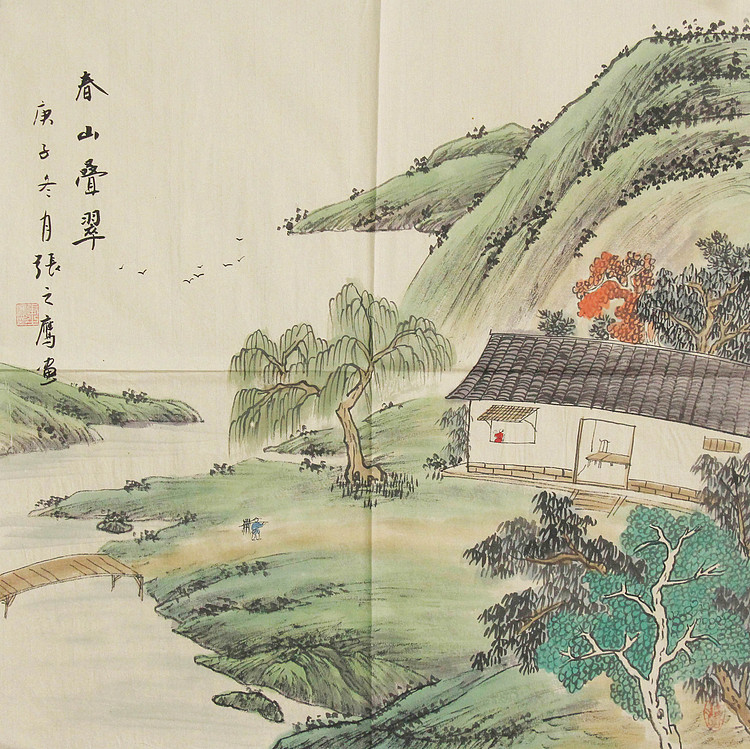 春山叠翠
庚子冬月張之鹰画